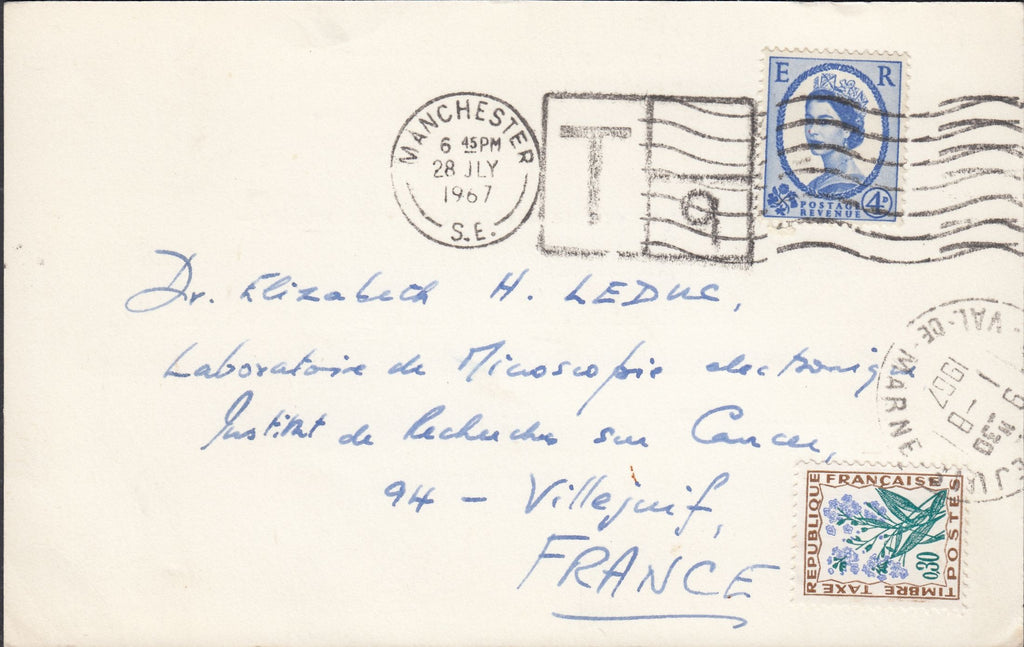 MANCHESTER
6 45PM
28 JLY
1967
S.E.
T
9
E R
POSTAGE
REVENUE
4D
Dr. Elizabeth H. LEDUC,
Laboratoire de Microscopie electroniq
Institut de Recherches sur Cancer,
94 - Villejuif,
FRANCE
VAL-DE-MARNE
9 H30
1 - 8
1967
REPUBLIQUE FRANÇAISE
POSTES
TIMBRE TAXE
0,30